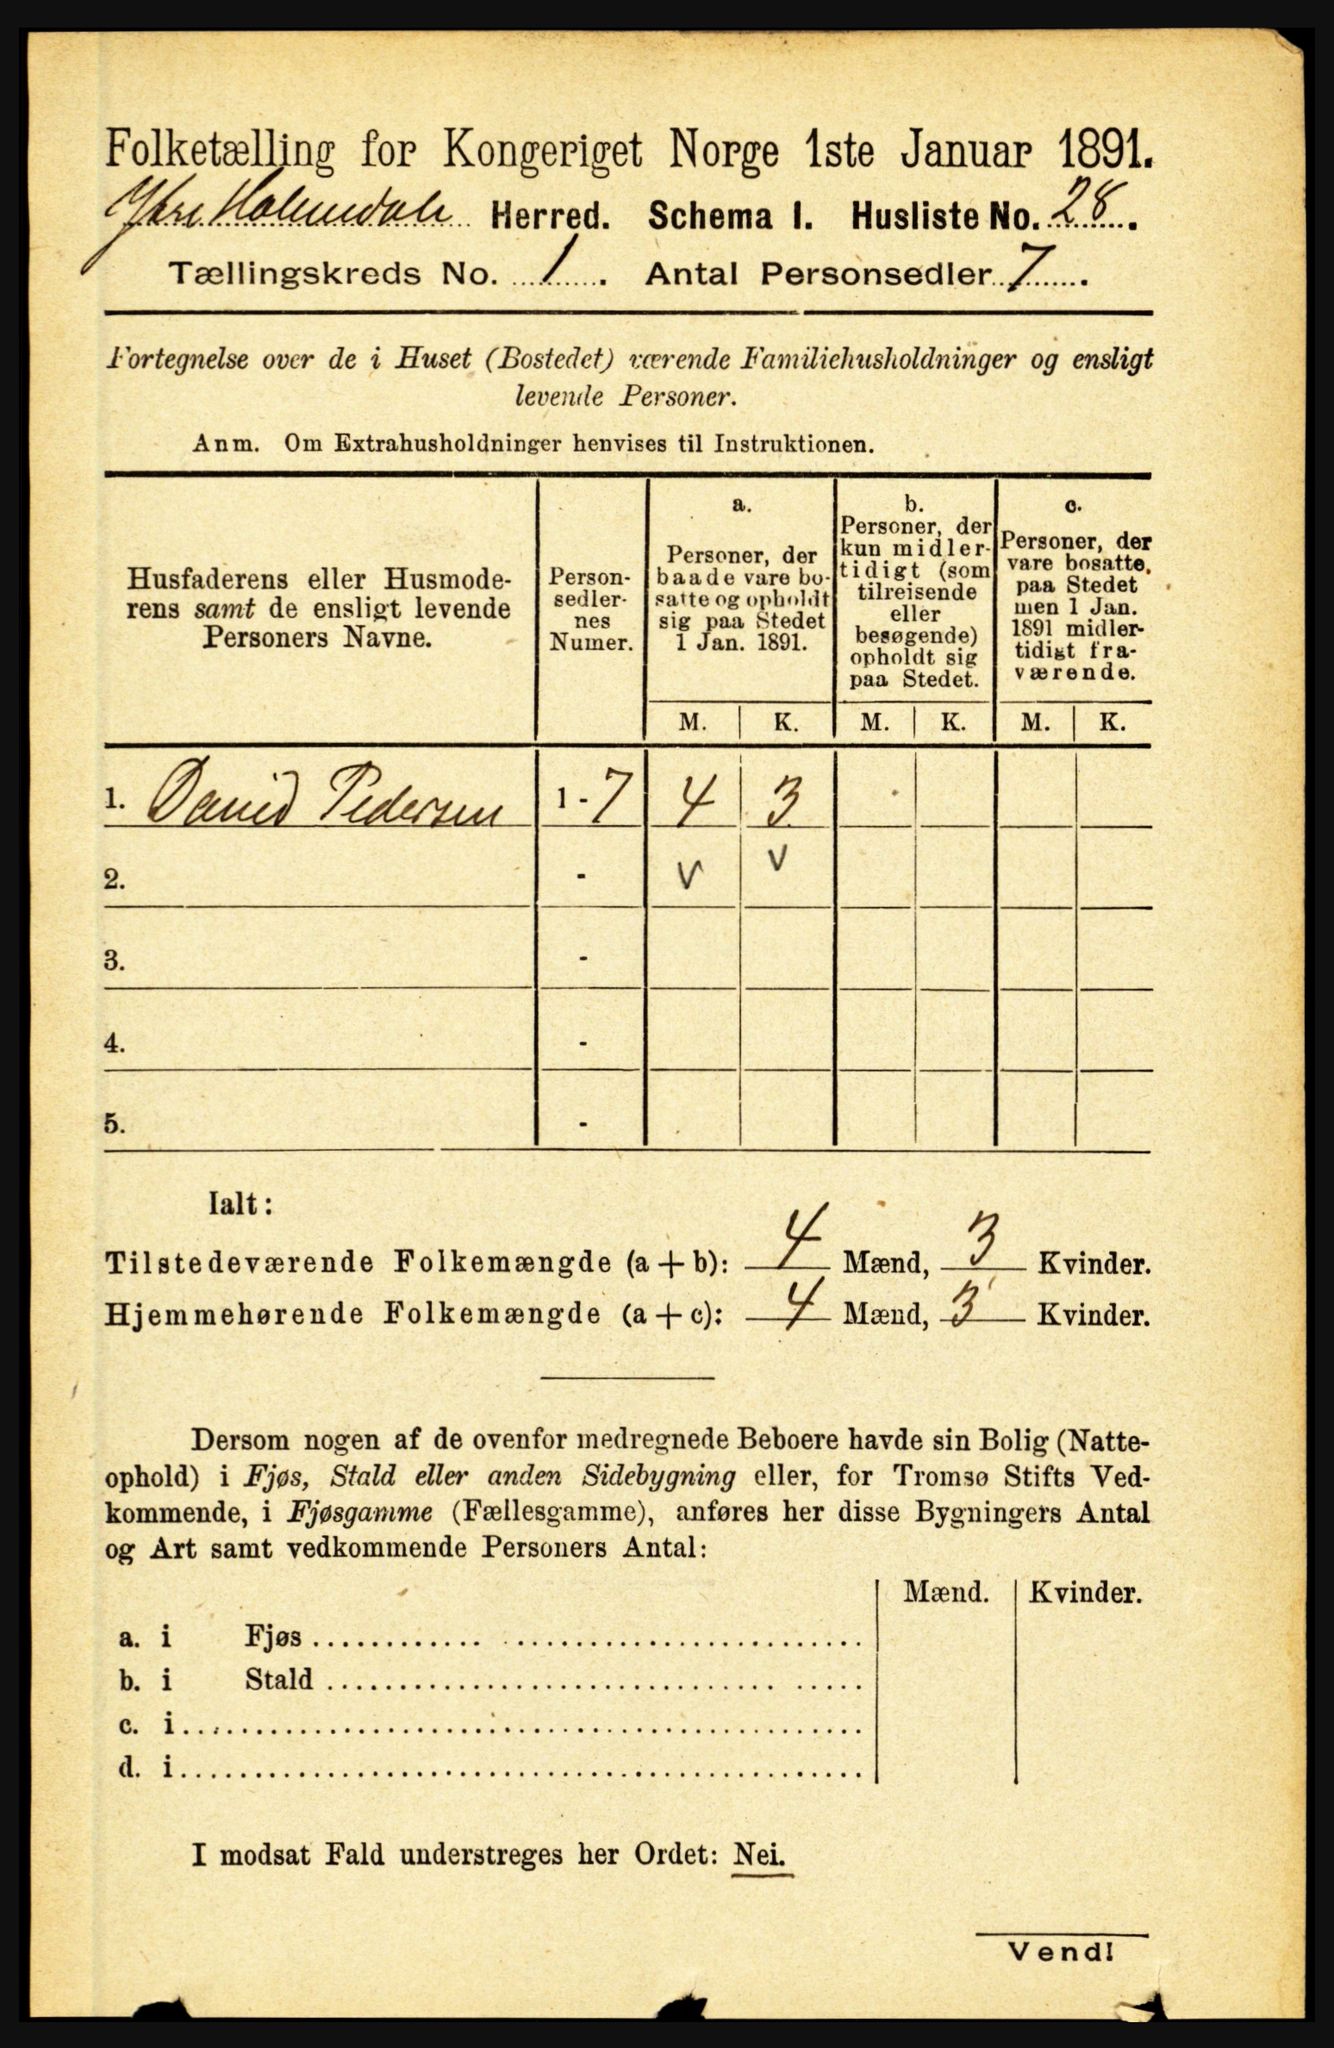 Folketælling for Kongeriget Norge 1ste Januar 1891.
Ytre Holmedals Herred. Schema I. Husliste No. 28.
Tællingskreds No. 1. Antal Personsedler 7.
Fortegnelse over de i Huset (Bostedet) værende Familiehusholdninger og ensligt
levende Personer.
Anm. Om Extrahusholdninger henvises til Instruktionen.
Husfaderens eller Husmode-
rens samt de ensligt levende
Personers Navne.
Person-
sedler-
nes
Numer.
a.
Personer, der
baade vare bo-
satte og opholdt
sig paa Stedet
1 Jan. 1891.
b.
Personer, der
kun midler-
tidigt (som
tilreisende
eller
besøgende)
opholdt sig
paa Stedet.
c.
Personer, der
vare bosatte,
paa Stedet
men 1 Jan.
1891 midler-
tidigt fra-
værende.
M. K. M. K. M. K.
1. David Pedersen 1 - 7 4 3
2. - v v
3. -
4. -
5. -
Ialt:
Tilstedeværende Folkemængde (a + b): 4 Mænd, 3 Kvinder.
Hjemmehørende Folkemængde (a + c): 4 Mænd, 3 Kvinder.
Dersom nogen af de ovenfor medregnede Beboere havde sin Bolig (Natte-
ophold) i Fjøs, Stald eller anden Sidebygning eller, for Tromsø Stifts Ved-
kommende, i Fjøsgamme (Fællesgamme), anføres her disse Bygningers Antal
og Art samt vedkommende Personers Antal:
Mænd. Kvinder.
a. i Fjøs
b. i Stald
c. i
d. i
I modsat Fald understreges her Ordet: Nei.
Vend!